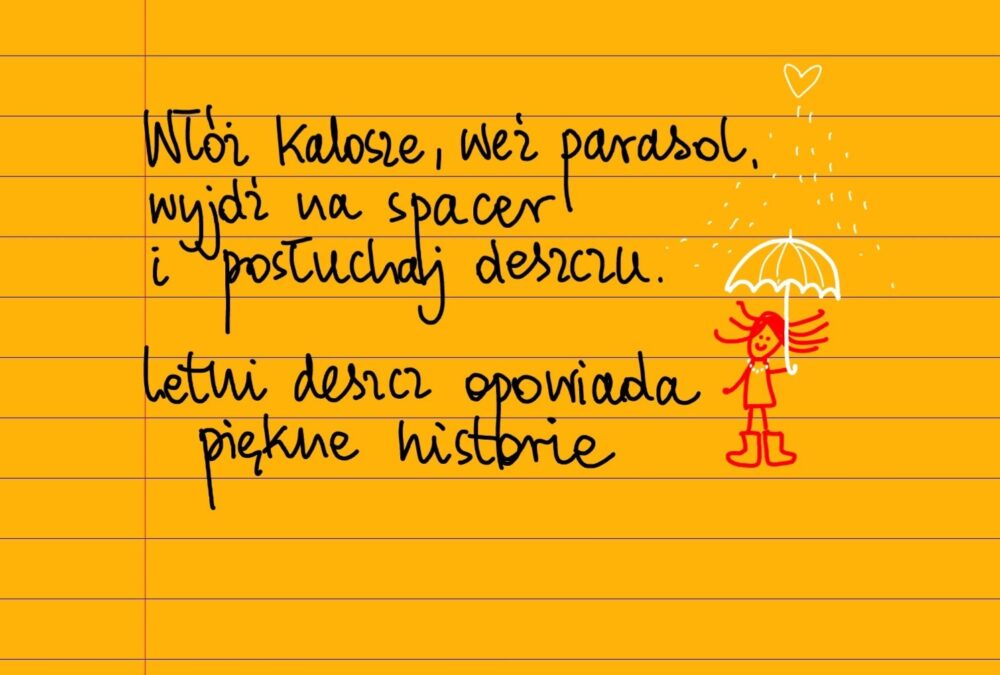 Włóż kalosze, weź parasol,
wyjdź na spacer
i posłuchaj deszczu.
Letni deszcz opowiada
piękne historie